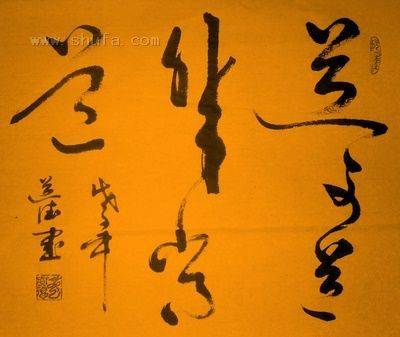 www.shufa.com
道可道
非常
道
戊子年